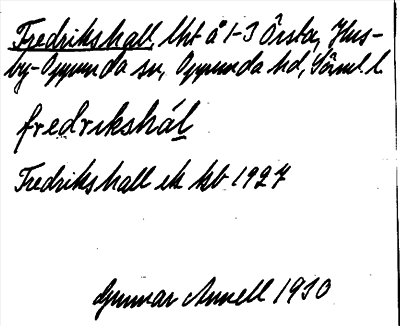 Fredrikshall, lht å 1-3 Örsta, Hus-
by-Oppunda sn, Oppunda hd, Söml. l.
fredrikshál
Fredrikshall ek kb 1927
Gunnar Annell 1930